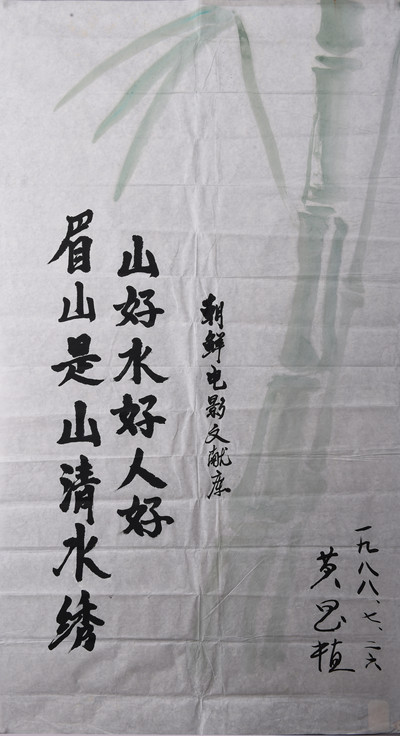 眉山是山清水绣
山好水好人好
朝鲜电影文献库
黄 植
一九八八、七、二六